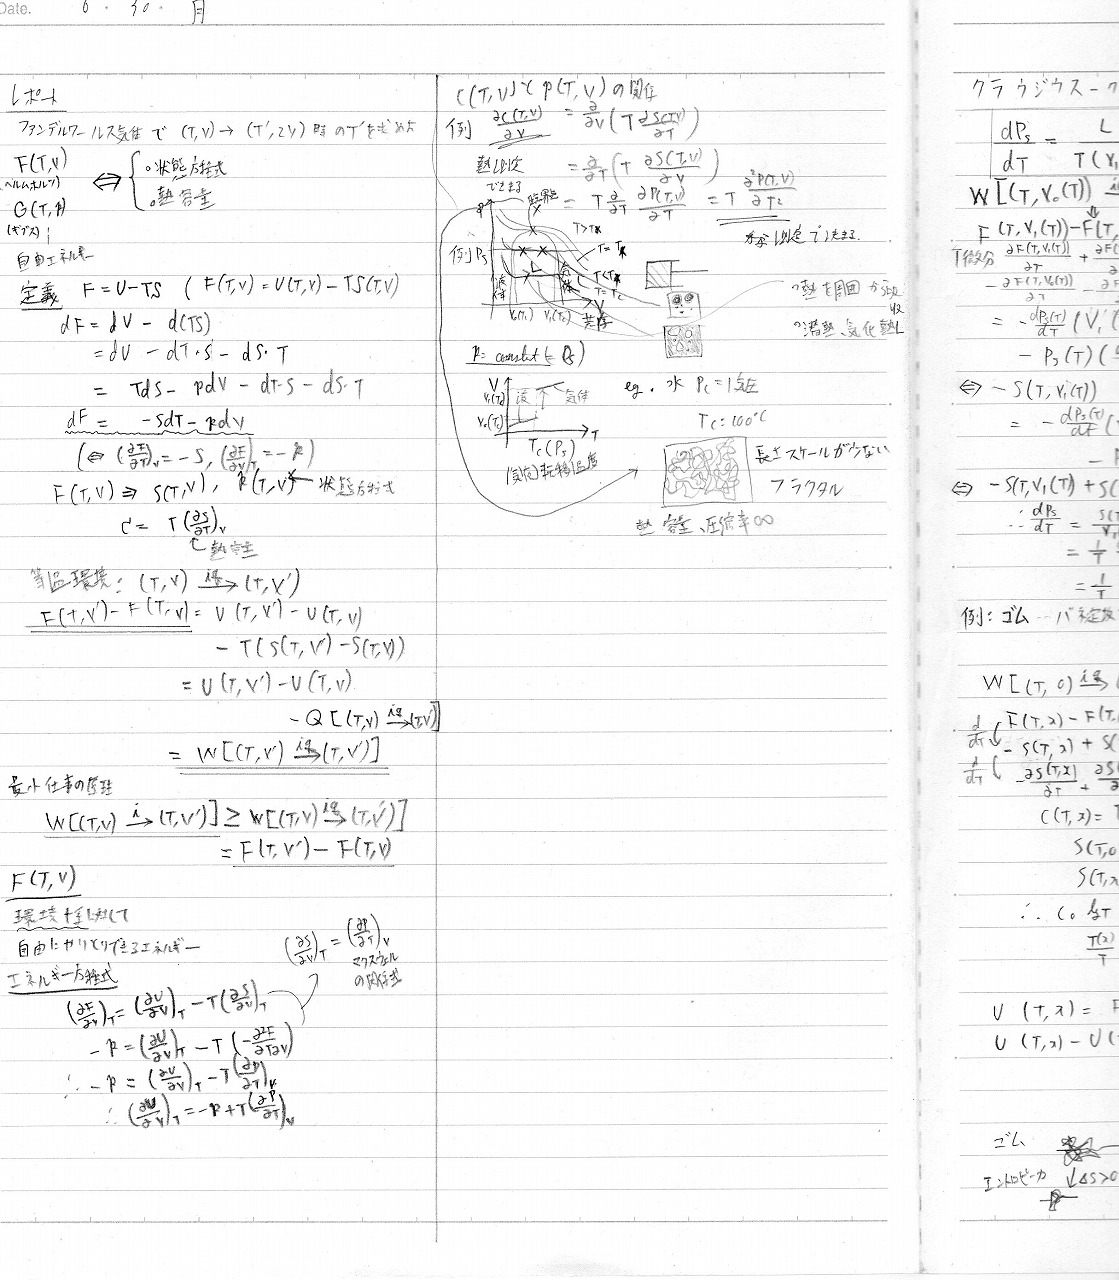 Date. 6・30・月
レポート
ファンデルワールス気体で (T,V)→(T',2V) 時のT'を求めよ
F(T,V)
(ヘルムホルツ)
⇔ { 。状態方程式
。熱容量
G(T,p)
(ギブス)
自由エネルギー
定義 F=U-TS ( F(T,V)=U(T,V)-TS(T,V)
dF = dU - d(TS)
= dU - dT・S - dS・T
= TdS - pdV - dT・S - dS・T
dF = -SdT - pdV
(⇔ (∂F/∂T)_V = -S, (∂F/∂V)_T = -p)
F(T,V) ⇒ S(T,V), p(T,V) ← 状態方程式
C = T(∂S/∂T)_V
熱容量
等温環境: (T,V) iq→ (T,V')
F(T,V') - F(T,V) = U(T,V') - U(T,V)
- T(S(T,V') - S(T,V))
= U(T,V') - U(T,V)
- Q[(T,V) iq→ (T,V')]
= W[(T,V) iq→ (T,V')]
最小仕事の原理
W[(T,V) i→ (T,V')] ≥ W[(T,V) iq→ (T,V')]
= F(T,V') - F(T,V)
F(T,V)
環境 に対して
自由にやりとりできるエネルギー
エネルギー方程式
(∂F/∂V)_T = (∂U/∂V)_T - T(∂S/∂V)_T
-p = (∂U/∂V)_T - T(-∂²F/∂T∂V)
∴ -p = (∂U/∂V)_T - T(∂p/∂T)_V
∴ (∂U/∂V)_T = -p + T(∂P/∂T)_V
(∂S/∂V)_T = (∂P/∂T)_V
マクスウェル
の関係式
C(T,V)と p(T,V) の関係
例 ∂C(T,V)/∂V = ∂/∂V (T ∂S(T,V)/∂T)
= ∂/∂T (T ∂S(T,V)/∂V)
= T ∂/∂T ∂P(T,V)/∂T = T ∂²P(T,V)/∂T²
できる
臨界点
例) Ps
T>T*
T=T*
T<T*
T=Tc
液体
気体
V₀(Tc) V₁(Tc)
共存
。熱を周囲から吸収
。潜熱、気化熱L
p = constant (= Ps)
V
V₁(Tc)
V₀(Tc)
液
気体
T
Tc(Ps)
(気液)転移温度
eg. 水 Pc = 1気圧
Tc = 100℃
長さスケールがない
フラクタル
熱容量、圧縮率∞
クラウジウス-ク
dPs/dT = L/T(V₁
W[(T,V₀(T)) i
F(T,V₁(T)) - F(T,
T微分 ∂F(T,V₁(T))/∂T + ∂F(
- ∂F(T,V₀(T))/∂T - ∂F
= -dPs(T)/dT (V₁
- Ps(T)(
⇔ -S(T,V₁(T))
= -dPs(T)/dT (V
- P
⇔ -S(T,V₁(T)) + S(
∴ dPs/dT = S(T/V₁
= 1/T
= 1/T
例: ゴム … バネ定数
W[(T,0) iq→
d/dT F(T,x) - F(T,
d/dT -S(T,x) + S(
-∂S(T,x)/∂T + ∂S(
C(T,x) = T
S(T,0
S(T,x
∴ C₀ log T
T(x)/T
U(T,x) = F
U(T,x) - U(
ゴム
エントロピー力 ↓ΔS>0